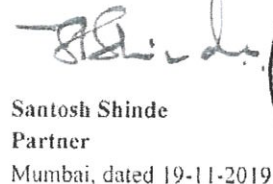 SShinde
Santosh Shinde
Partner
Mumbai, dated 19-11-2019